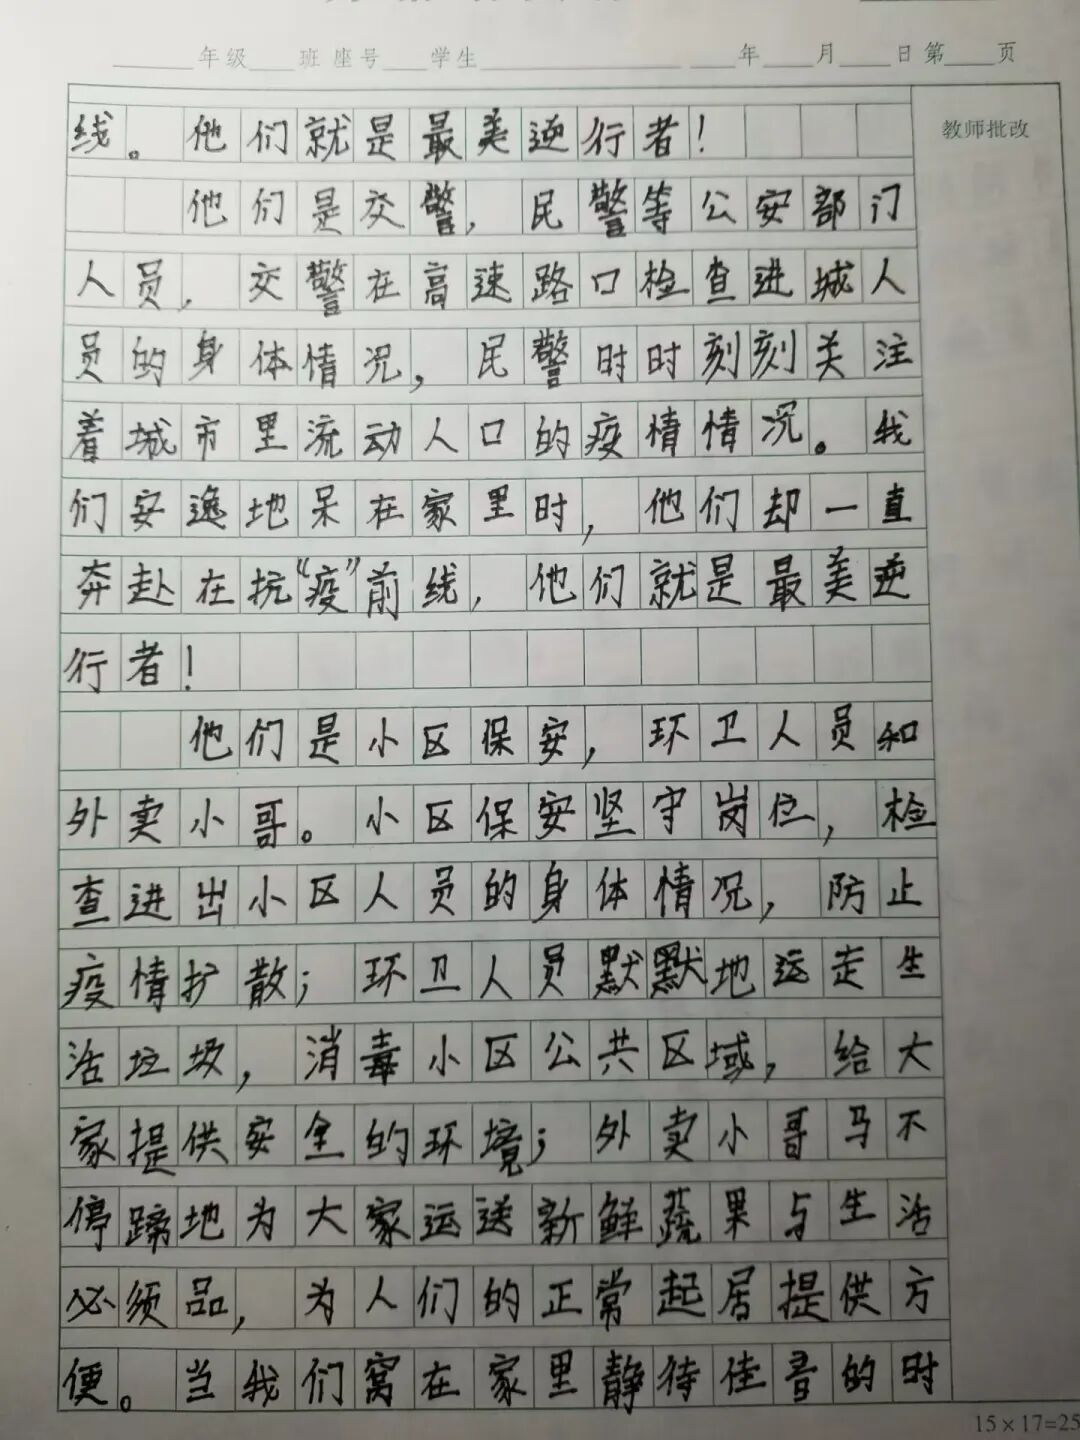 年级 班 座号 学生 年 月 日 第 页
教师批改
线。他们就是最美逆行者！
他们是交警，民警等公安部门
人员，交警在高速路口检查进城人
员的身体情况，民警时时刻刻关注
着城市里流动人口的疫情情况。我
们安逸地呆在家里时，他们却一直
奔赴在抗“疫”前线，他们就是最美逆
行者！
他们是小区保安，环卫人员和
外卖小哥。小区保安坚守岗位，检
查进出小区人员的身体情况，防止
疫情扩散；环卫人员默默地运走生
活垃圾，消毒小区公共区域，给大
家提供安全的环境；外卖小哥马不
停蹄地为大家运送新鲜蔬果与生活
必须品，为人们的正常起居提供方
便。当我们窝在家里静待佳音的时
15×17=25